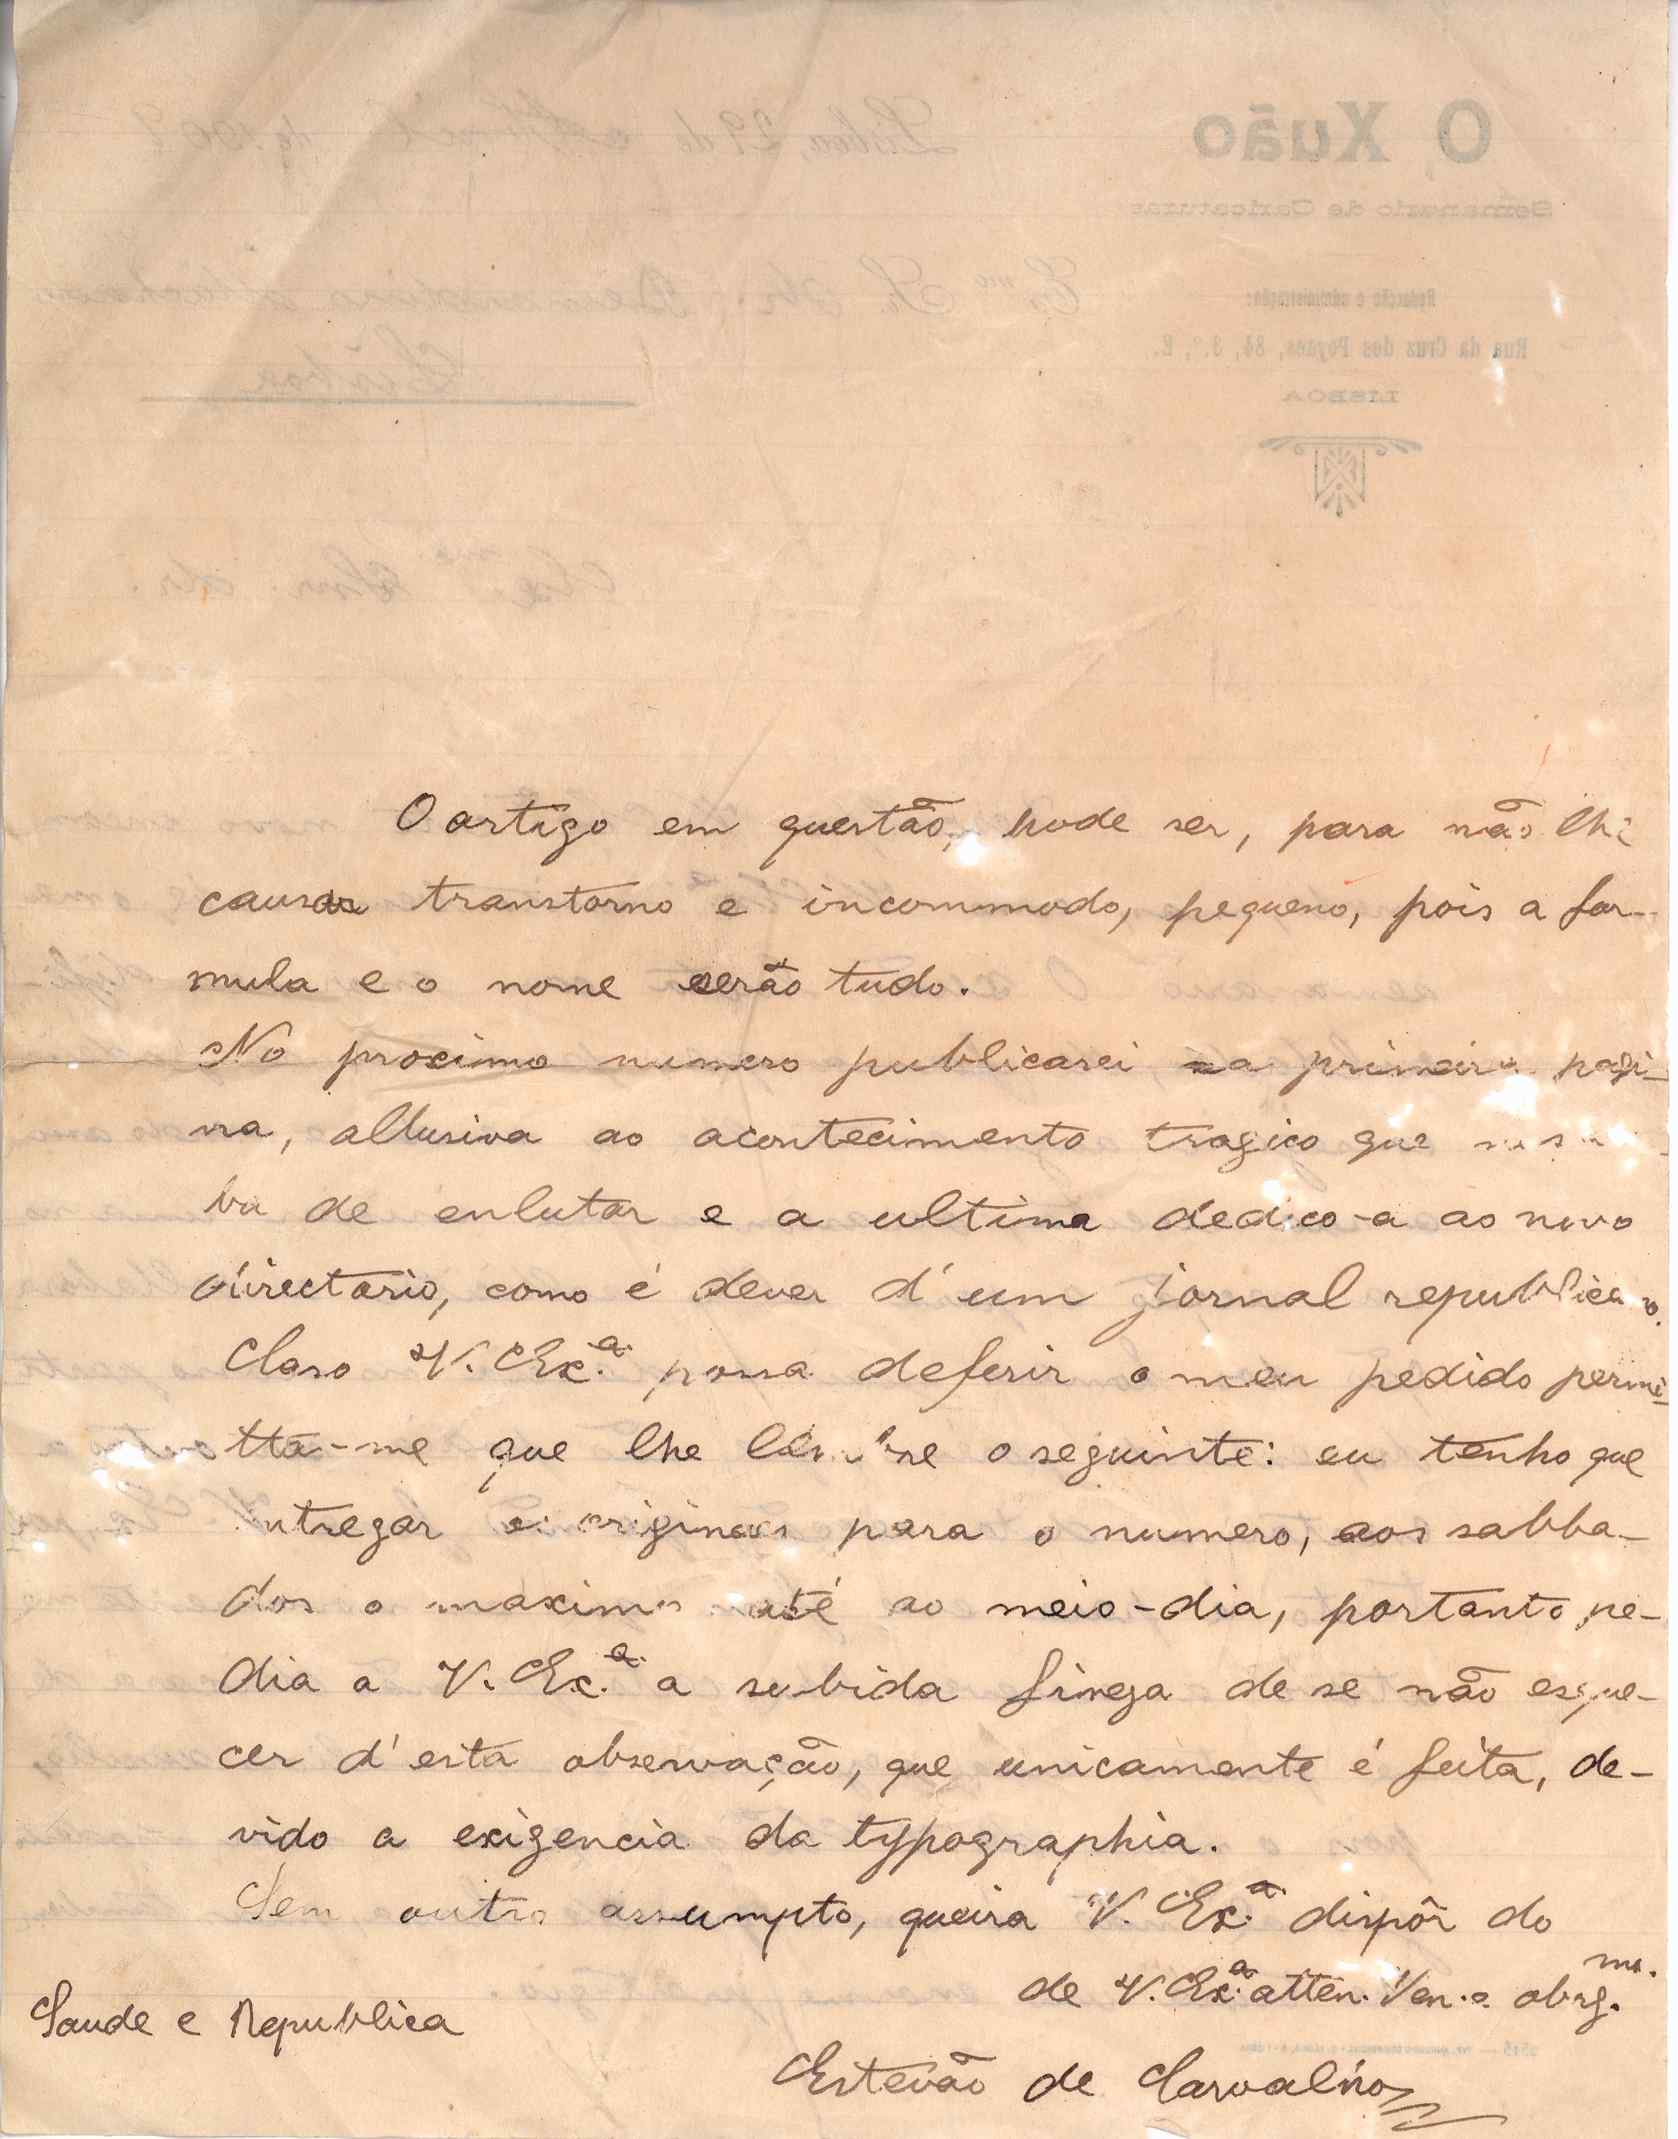 O artigo em questão, pode ser, para não lhe
causar transtorno e incommodo, pequeno, pois a for-
mula e o nome serão tudo.
No proximo numero publicarei a primeira pagi-
na, allusiva ao acontecimento tragico que nos
de enlutar e a ultima dedico-a ao novo
directorio, como é dever d'um jornal republicano.
Caso V. Ex.ª possa deferir o meu pedido permi-
tta-me que lhe lembre o seguinte: eu tenho que
entregar os originaes para o numero, aos sabba-
dos o maximo até ao meio-dia, portanto pe-
dia a V. Ex.ª a subida fineza de se não esque-
cer d'esta observação, que unicamente é feita, de-
vido a exigencia da typographia.
Sem outro assumpto, queira V. Ex.ª dispôr do
de V. Ex.ª atten. Ven. e obrg.mo
Saude e Republica
Estevão de Carvalho
O Xuão
Semanario de Caricaturas
Redacção e administração:
Rua da Cruz dos Poyaes, 84, 3.º, E.
LISBOA
Lisboa, 29 de Abril de 1909
Lisboa